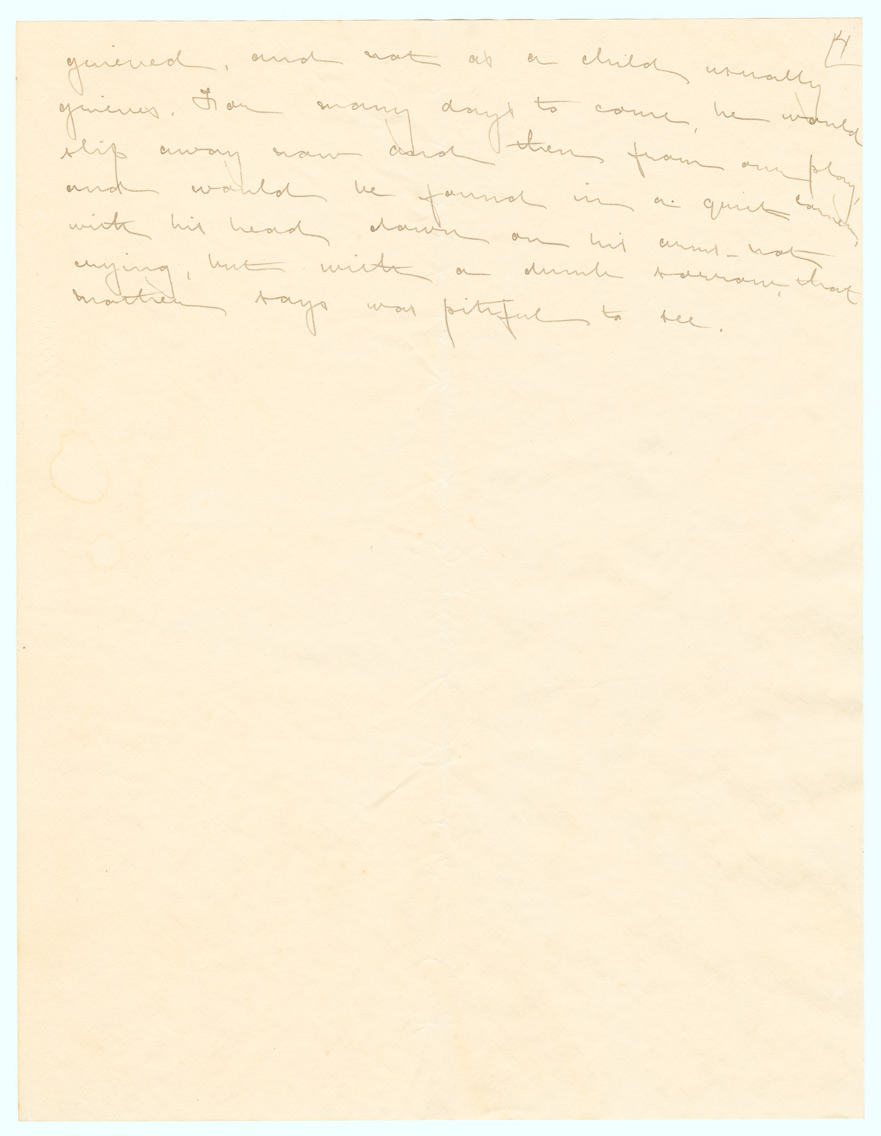 4
grieved, and not as a child usually
grieves. For many days to come, he would
slip away now and then from our play,
and would be found in a quiet corner,
with his head down on his arms - not
crying, but with a dumb sorrow, that
mother says was pitiful to see.